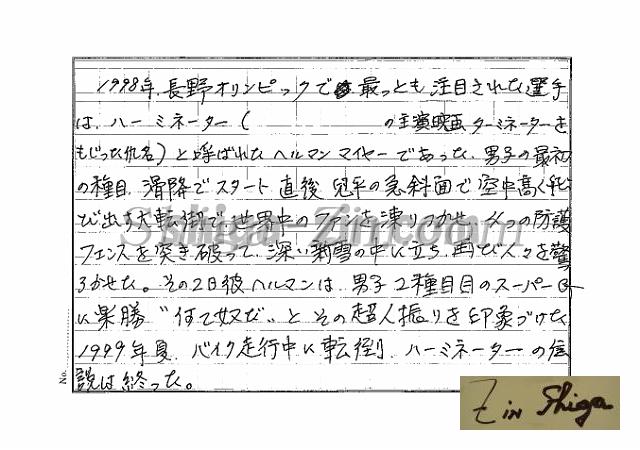 1998年、長野オリンピックで最っとも注目された選手
は、ハーミネーター(の主演映画ターミネーターを
もじった仇名)と呼ばれたヘルマンマイヤーであった。男子の最初
の種目、滑降でスタート直後、急斜面で空中高く飛
び出す大転倒で世界中のファンを凍りつかせ、の防護
フェンスを突き破って、深い新雪の中に立ち、再び人々を驚
ろかせた。その2日後ヘルマンは、男子2種目目のスーパーG
に楽勝“何て奴だ”とその超人振りを印象づけた
1999年夏、バイク走行中に転倒、ハーミネーターの伝
説は終った。
No.
Shiga-Zin.com
Z in Shiga